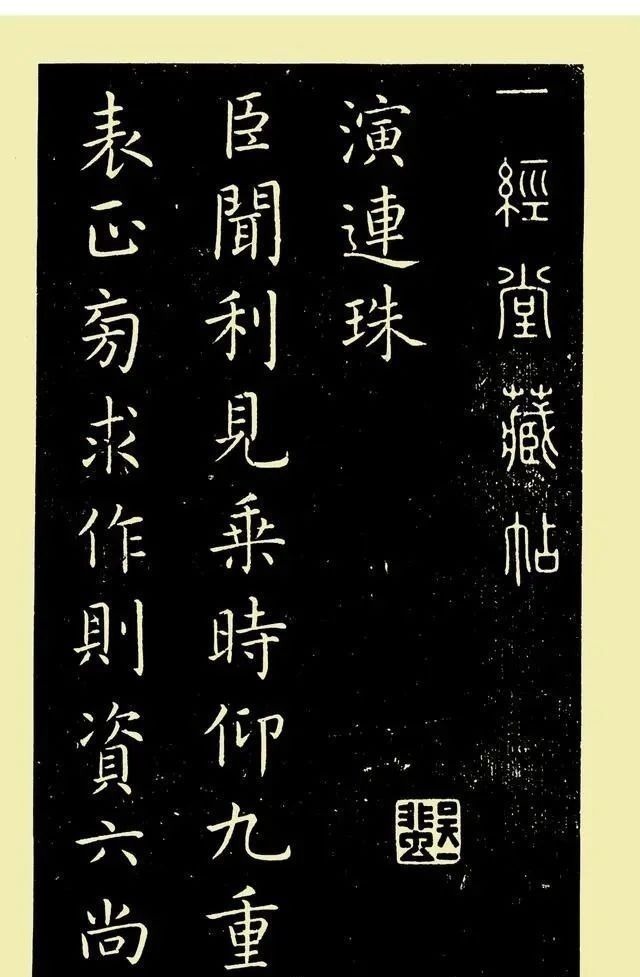 一經堂藏帖
演連珠
臣聞利見乗時仰九重
表正旁求作則資六尚